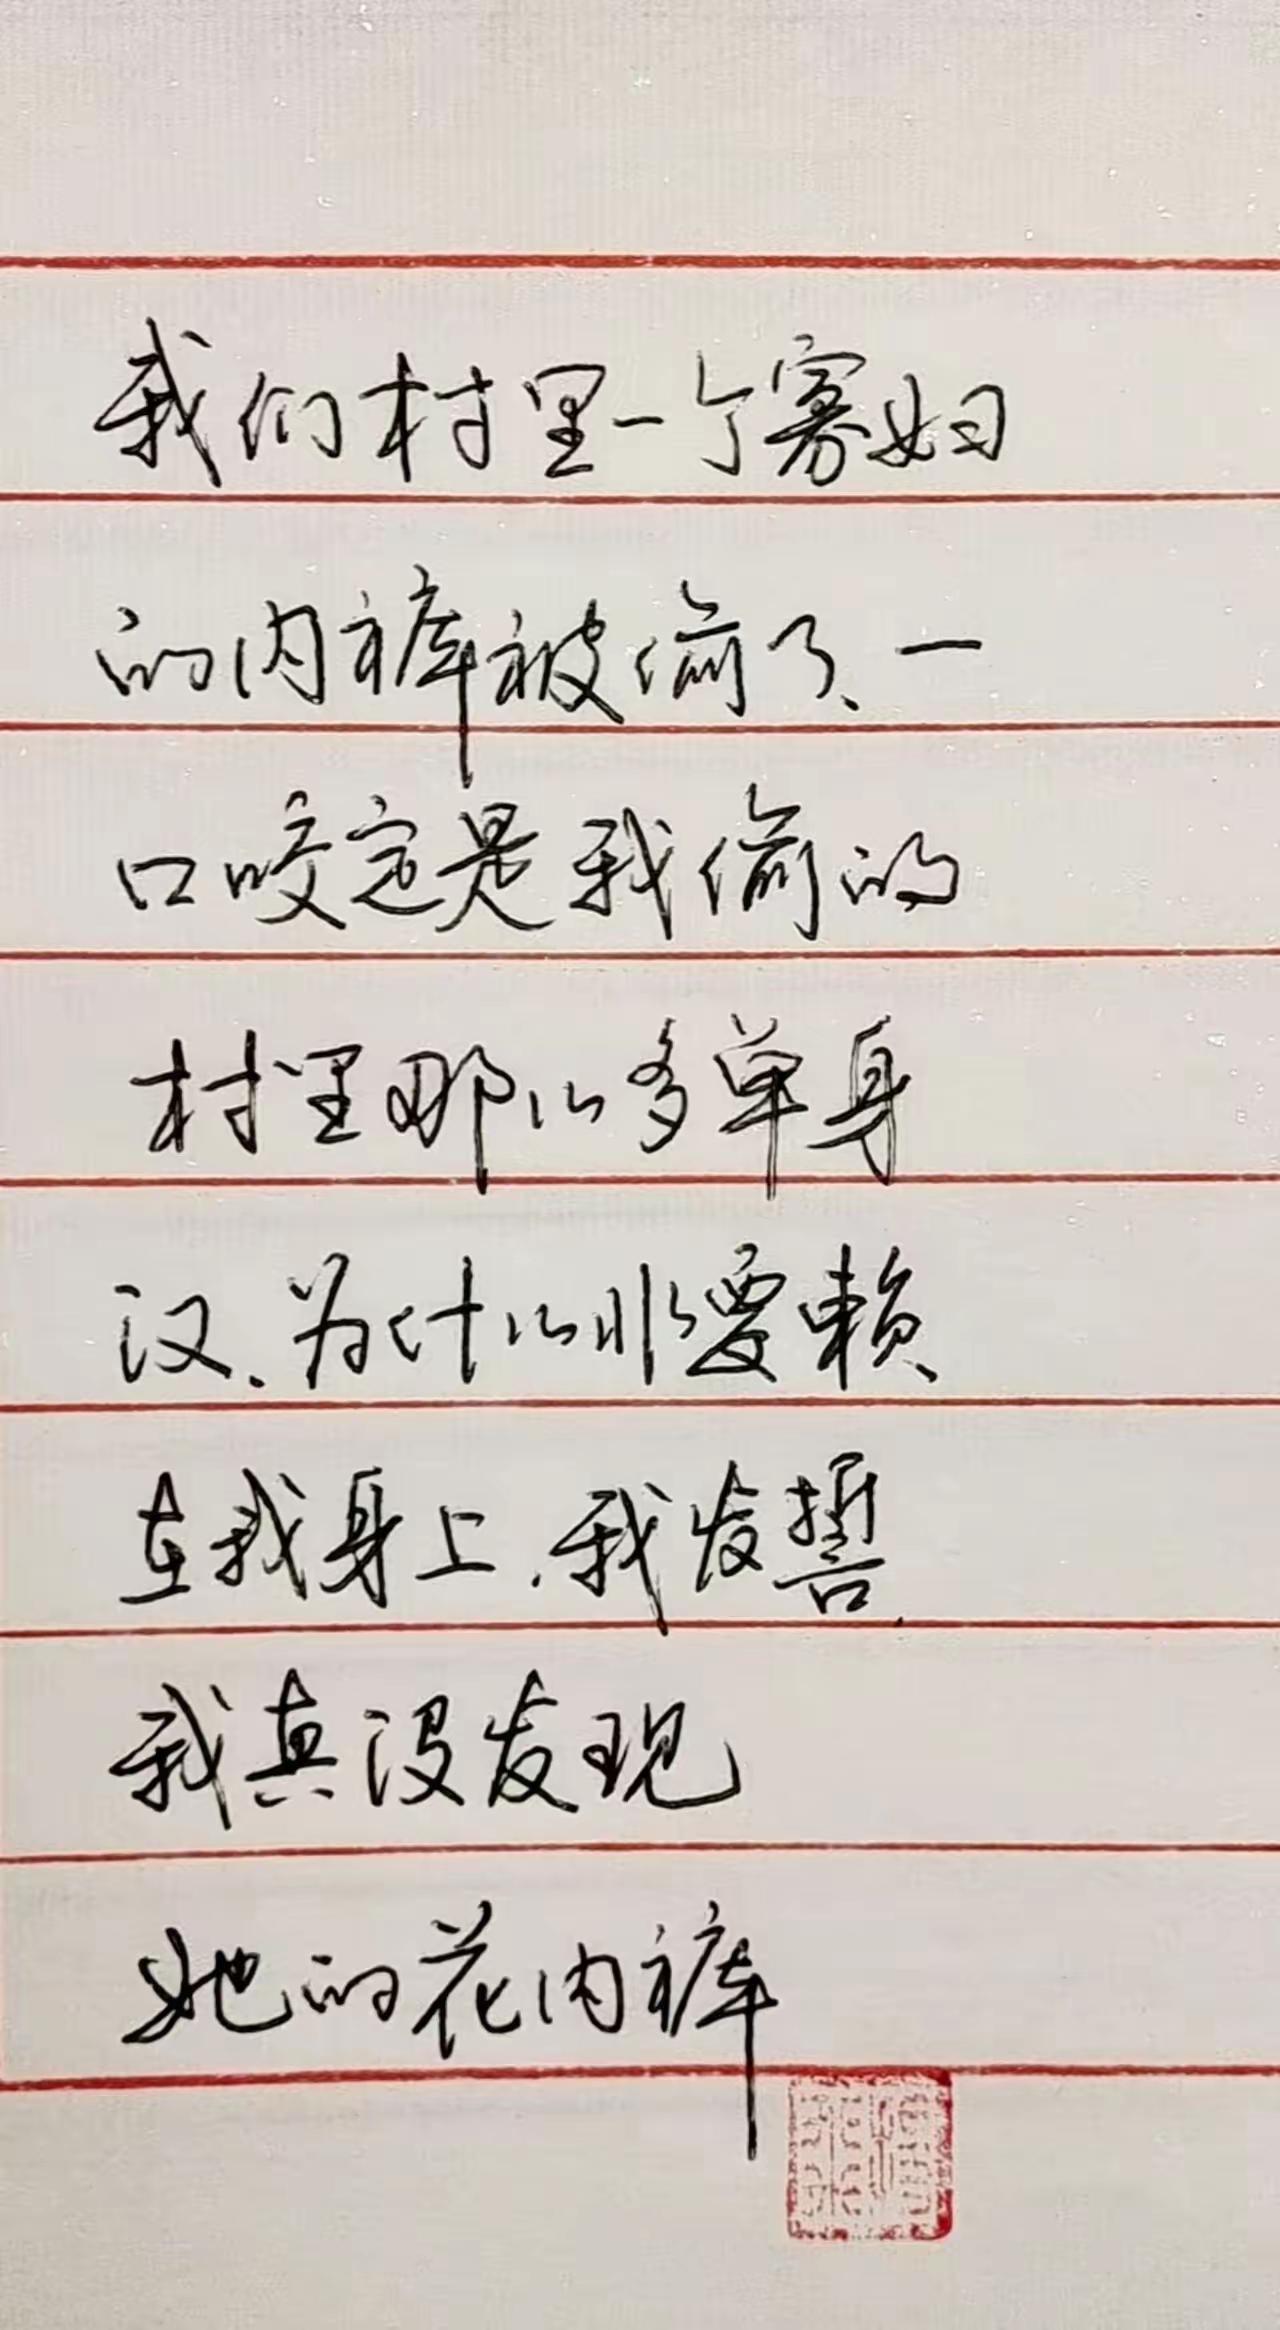 我们村里一个寡妇
的内裤被偷了、一
口咬定是我偷的
村里那么多单身
汉、为什么非要赖
在我身上、我发誓
我真没发现
她的花内裤